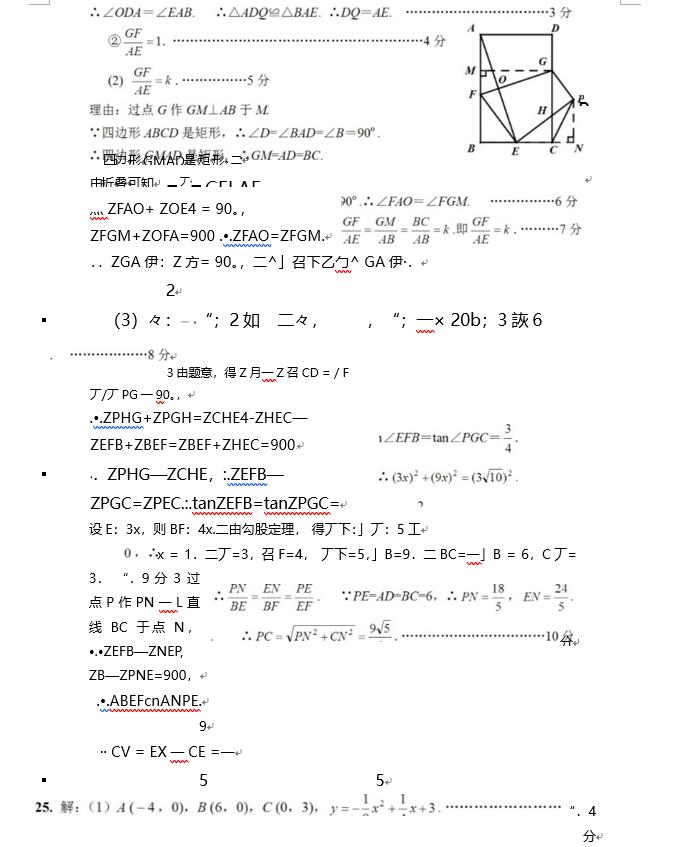 ∴∠ODA=∠EAB. ∴△ADQ≌△BAE. ∴DQ=AE. ………………………3 分
② GF/AE =1. ………………………………………4 分
(2) GF/AE =k. ……………5 分
理由：过点 G 作 GM⊥AB 于 M.
∵四边形 ABCD 是矩形，∴∠D=∠BAD=∠B=90°.
∴四边形 GMAD 是矩形. ∴GM=AD=BC.
由折叠可知
ZFAO+ ZOE4 = 90。,
90°.∴∠FAO=∠FGM. ……………6 分
ZFGM+ZOFA=900 .•.ZFAO=ZFGM.
GF/AE = GM/AB = BC/AB =k.即 GF/AE =k. ………7 分
. . ZGA 伊：Z 方= 90。，二^」召下乙勹^ GA 伊·.
2
（3）々：－，“；2 如 二々， ，“；—× 20b；3 詼 6
. ………………8 分
3 由题意，得 Z 月一 Z 召 CD = / F
丆/丆 PG 一 90。，
.•.ZPHG+ZPGH=ZCHE4-ZHEC—
ZEFB+ZBEF=ZBEF+ZHEC=900
∠EFB=tan∠PGC= 3/4 .
ZPHG—ZCHE，:.ZEFB—
∴ (3x)²+(9x)²=(3√10)².
ZPGC=ZPEC.:.tanZEFB=tanZPGC=
设 E：3x，则 BF：4x.二由勾股定理， 得丆下:」丆：5 工
0，∴x = 1．二丆=3，召 F=4， 丆下=5，」B=9．二 BC=—」B = 6，C 丆=
3． “．9 分 3 过
点 P 作 PN 一 L 直
线 BC 于点 N，
∴ PN/BE = EN/BF = PE/EF . ∵PE=AD=BC=6，∴ PN= 18/5 ，EN= 24/5 .
∴ PC=√(PN²+CN²) = 9√5 . ……………………………10 分
•.•ZEFB—ZNEP,
ZB—ZPNE=900，
.•.ABEFcnANPE.
9
·· CV = EX — CE =—
5 5
25. 解：（1）A (−4，0)，B (6，0)，C (0，3)，
“．4
分
A
D
M
G
O
F
P
H
B
E
C
N